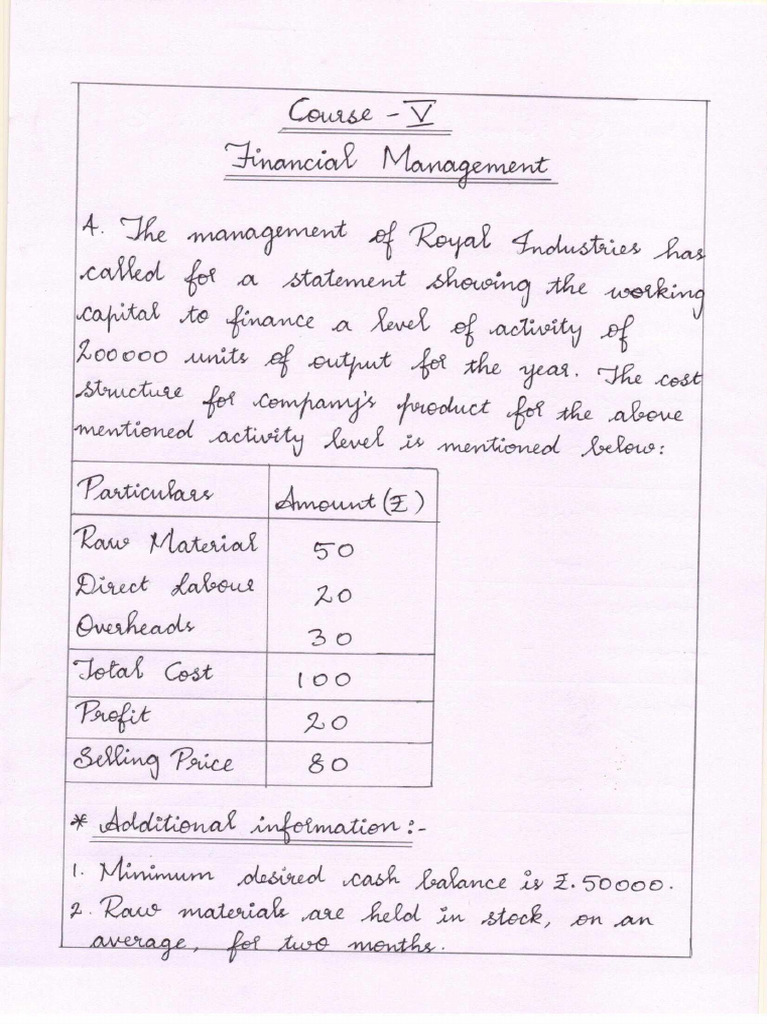 Course - V
Financial Management
A. The management of Royal Industries has
called for a statement showing the working
capital to finance a level of activity of
200000 units of output for the year. The cost
structure for company's product for the above
mentioned activity level is mentioned below:
Particulars Amount (₹)
Raw Material 50
Direct Labour 20
Overheads 30
Total Cost 100
Profit 20
Selling Price 80
* Additional information :-
1. Minimum desired cash balance is ₹. 50000.
2. Raw materials are held in stock, on an
average, for two months.